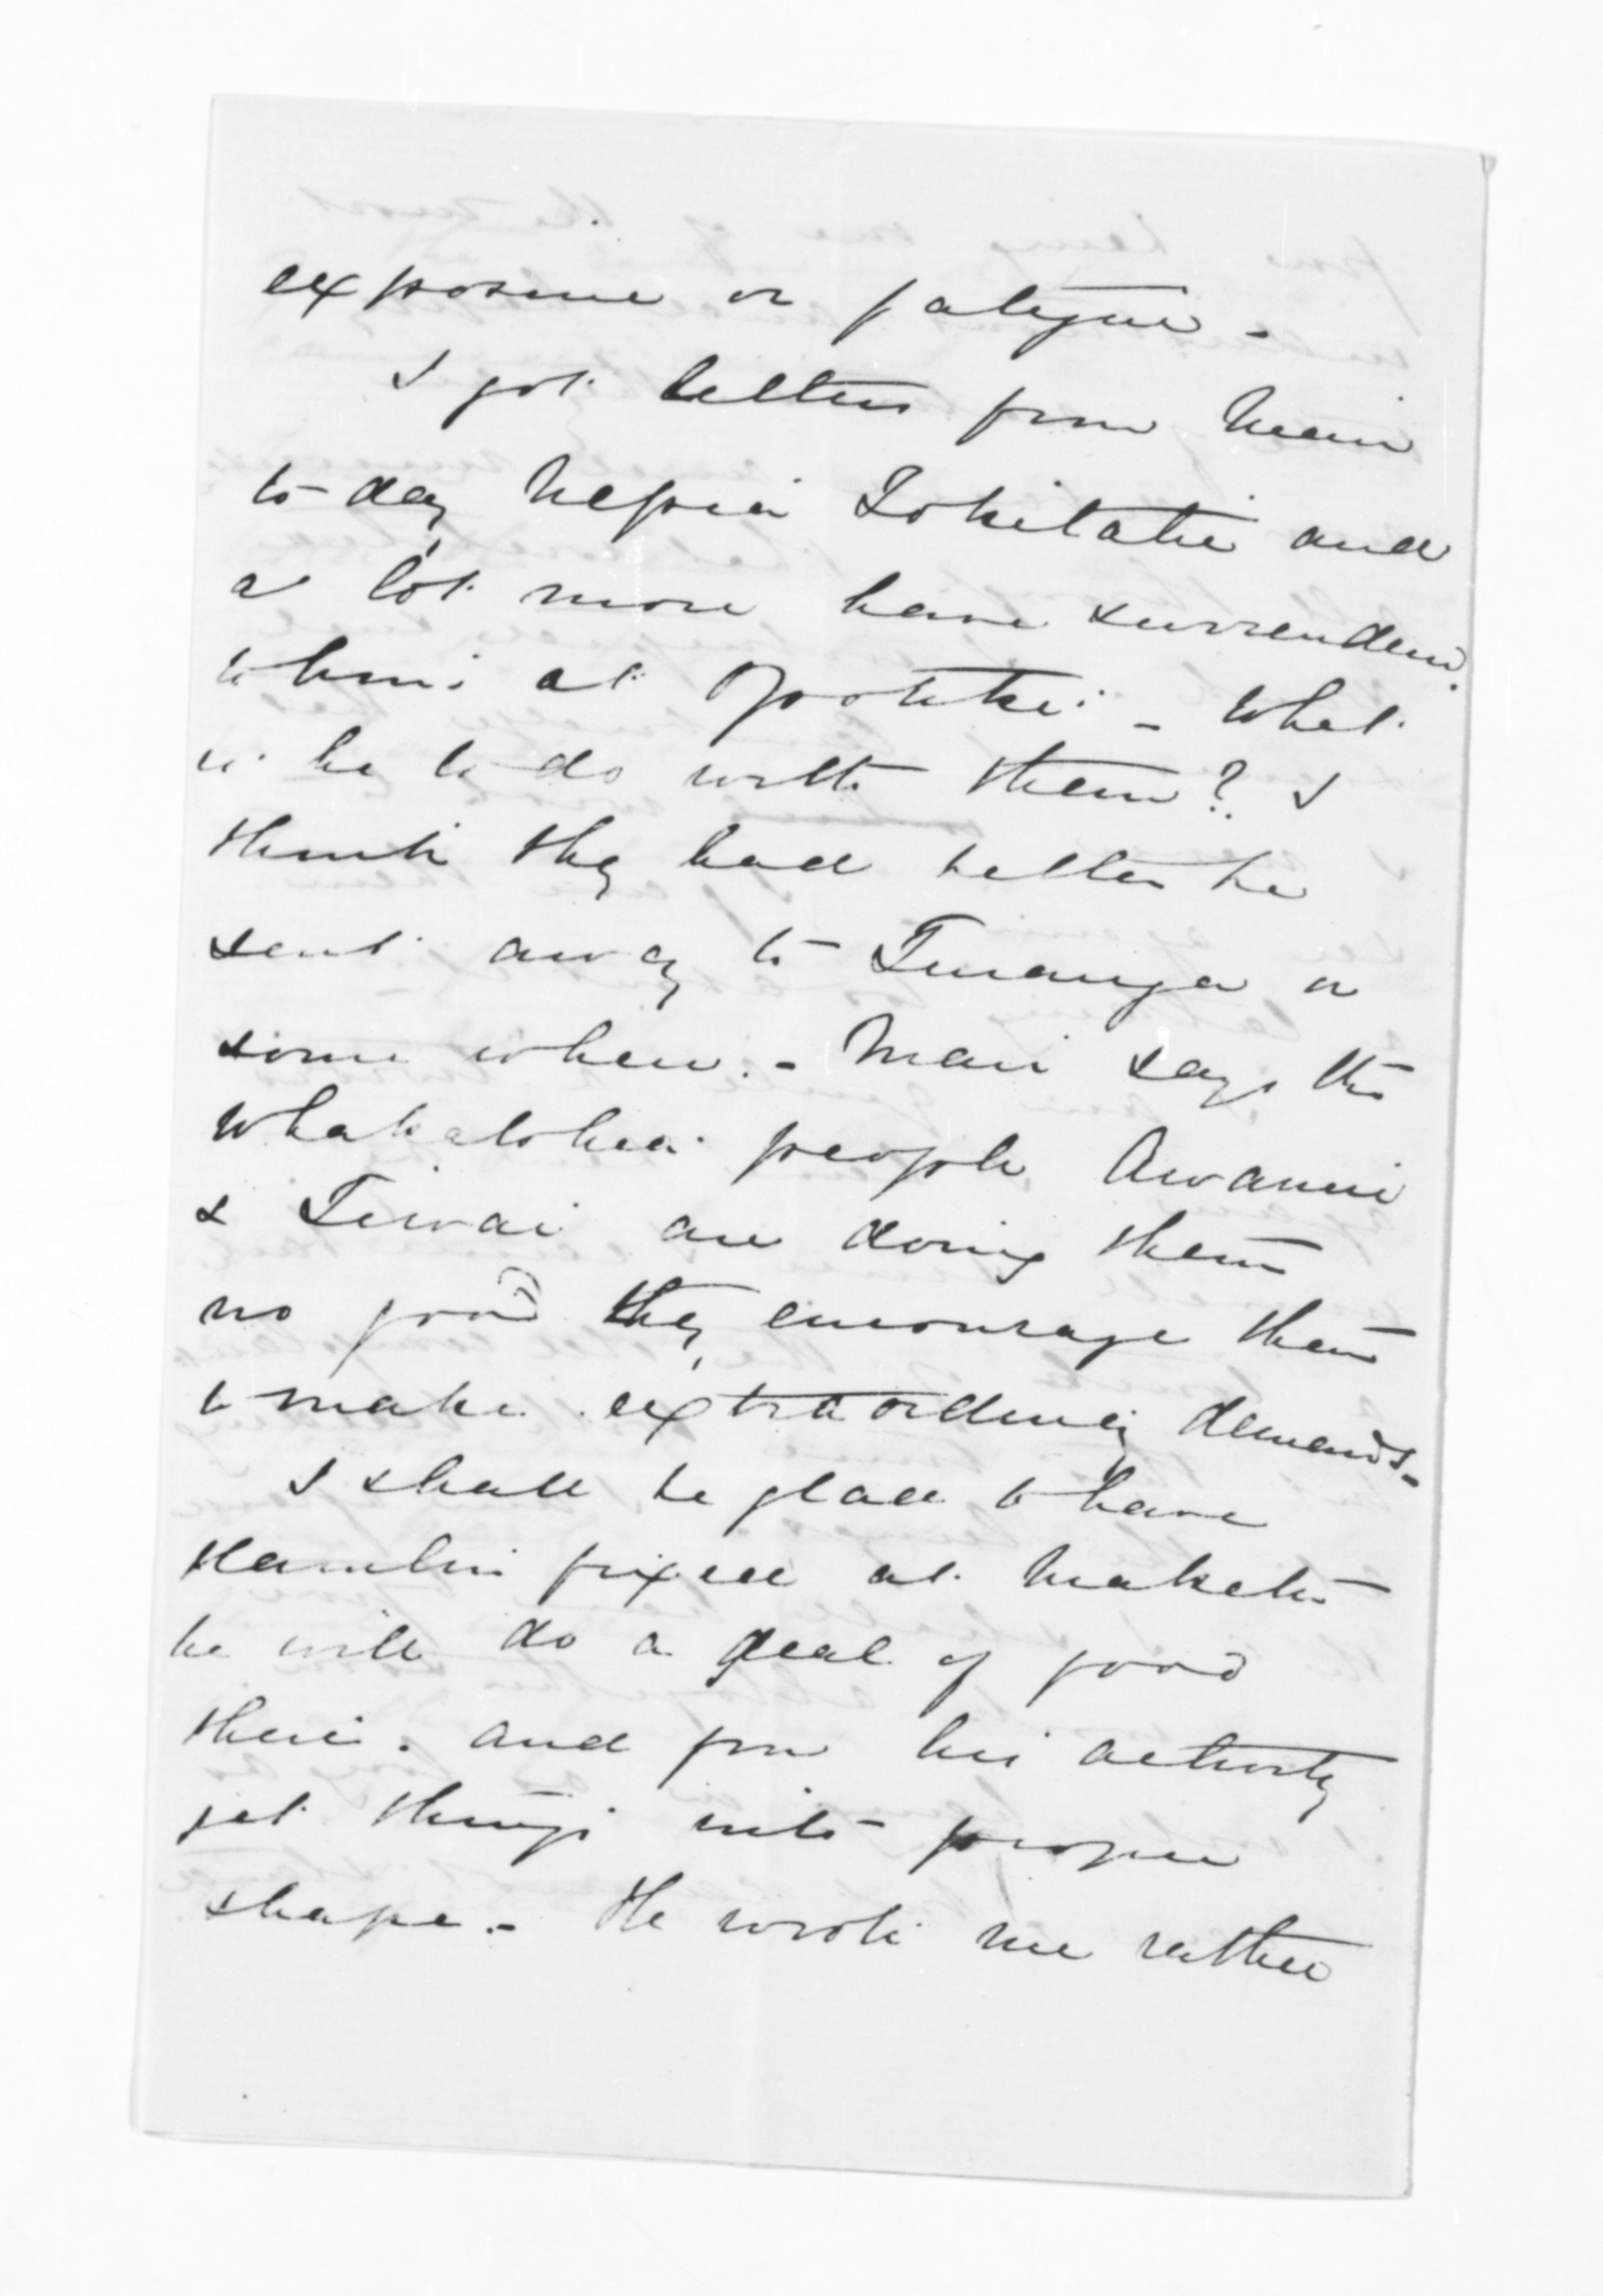 exposure or fatigue -
I got letters from Mair
to-day, Nepia Tokitahi and
a lot more have surrendered
to him at Opotiki - What
is he to do with them? I
think they had better be
sent away to Turanga or
some where. - Mair says the
Whakatohea people Awanui
& Tiwai are doing them
no good they, encourage them
to make extraordinary demands -
I shall be glad to have
Hamlin fixed at Maketu
he will do a deal of good
there. and from his activity
get things into proper
shape. - He wrote me rather